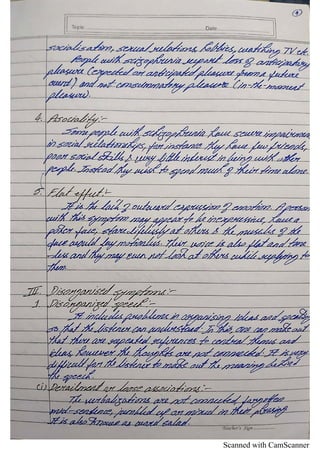 ④
Topic Date
socialisation, sexual relations, hobbies, watching TV etc.
People with schizophrenia report loss of anticipatory
pleasure (expected or anticipated pleasure from a future
event) and not consummatory pleasure (in-the-moment
pleasure).
4. Asociality:-
Some people with schizophrenia have severe impairment
in social relationships, for instance they have few friends,
poor social skills & very little interest in being with other
people. Instead they wish to spend much of their time alone.
5. Flat effect:-
It is the lack of outward expression of emotion. A person
with this symptom may appear to be inexpressive, have a
poker face, stare lifelessly at others & the muscles of the
face would lay motionless. Their voice is also flat and tone
-less and they may even not look at others while replying to
them.
III. Disorganised symptoms:-
1. Disorganized speech:-
It includes problems in organising ideas and speaking
so, that the listener can understand. In this, one can make out
that there are repeated references to central themes and
ideas however the thoughts are not connected. It is very
difficult for the listener to make out the meaning behind
the speech.
(i) Derailment or loose associations:-
The verbalizations are not connected,
mid-sentence, jumbled up or mixed in their phrasing.
It is also known as word salad.
Teacher's Sign
Scanned with CamScanner